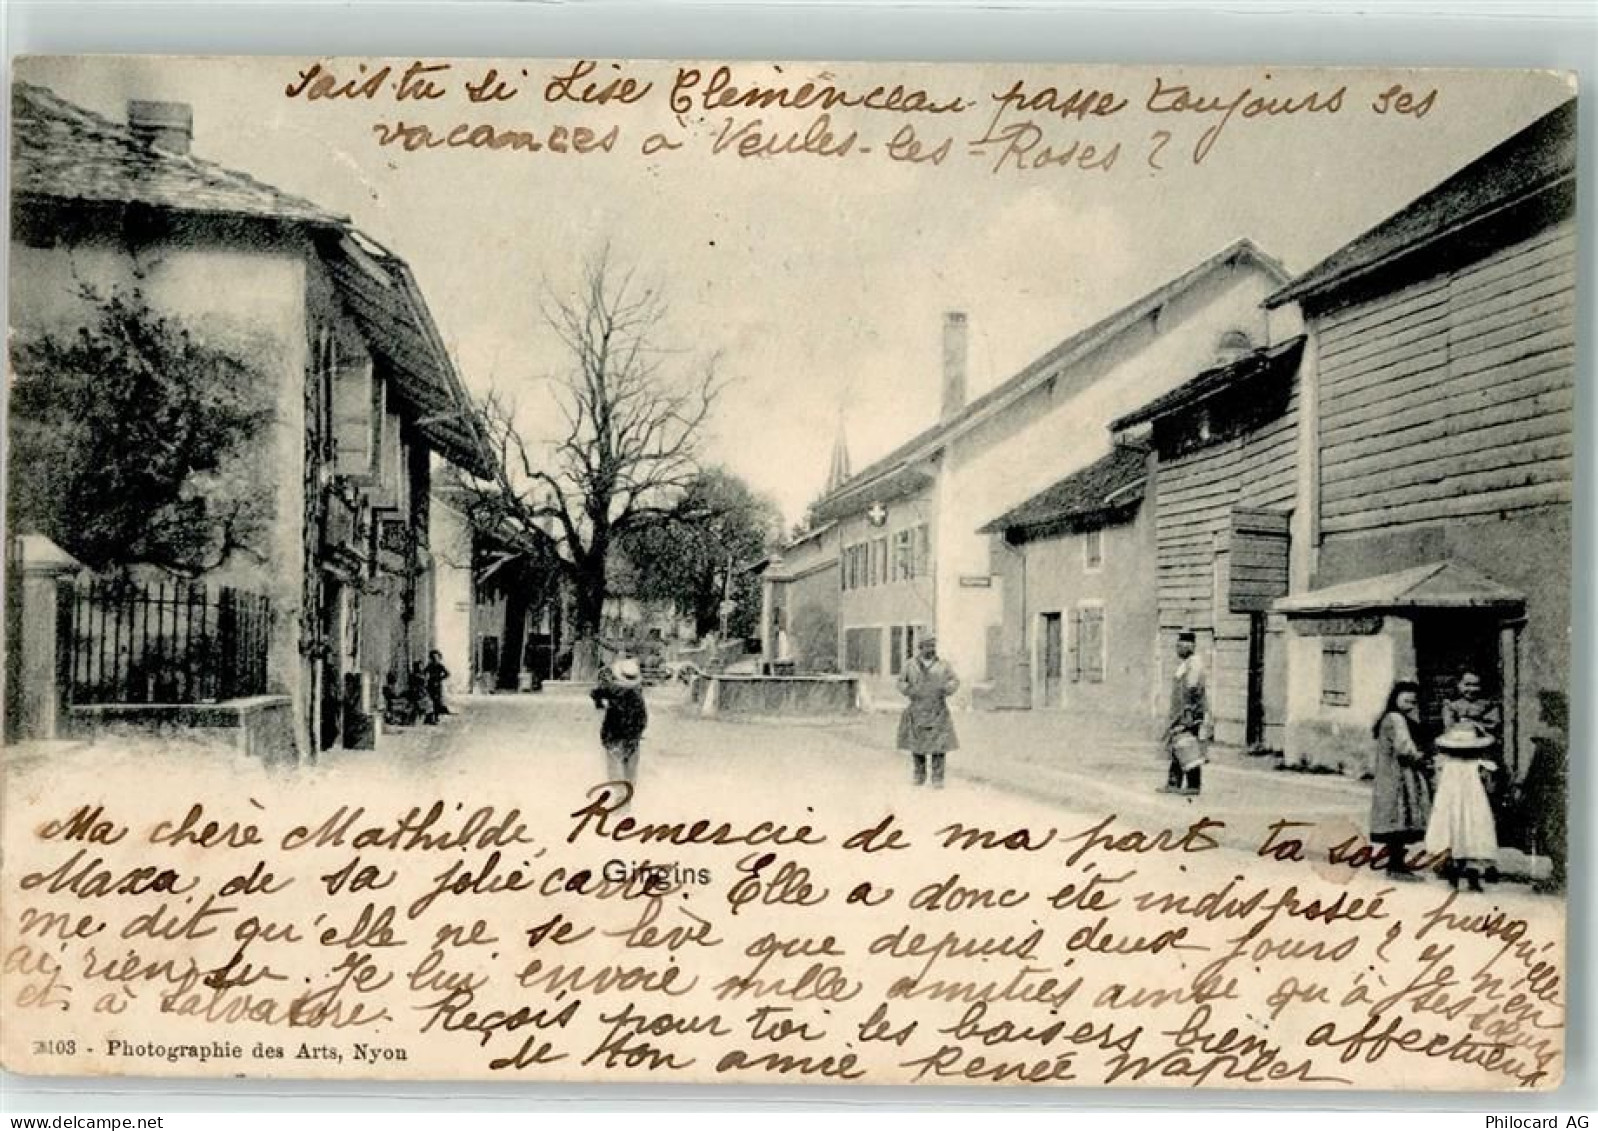 Sais-tu si Lise Clemenceau passe toujours ses
vacances à Veules-les-Roses ?
Ma chère Mathilde, Remercie de ma part ta sœur
Gingins
Maxa de sa jolie carte. Elle a donc été indisposée, puisqu'elle
me dit qu'elle ne se lève que depuis deux jours ? Je n'en
ai rien su. Je lui envoie mille amitiés ainsi qu'à ses sœurs
et à Salvatore. Reçois pour toi les baisers bien affectueux
2103 - Photographie des Arts, Nyon
de ton amie Renée
Philocard AG